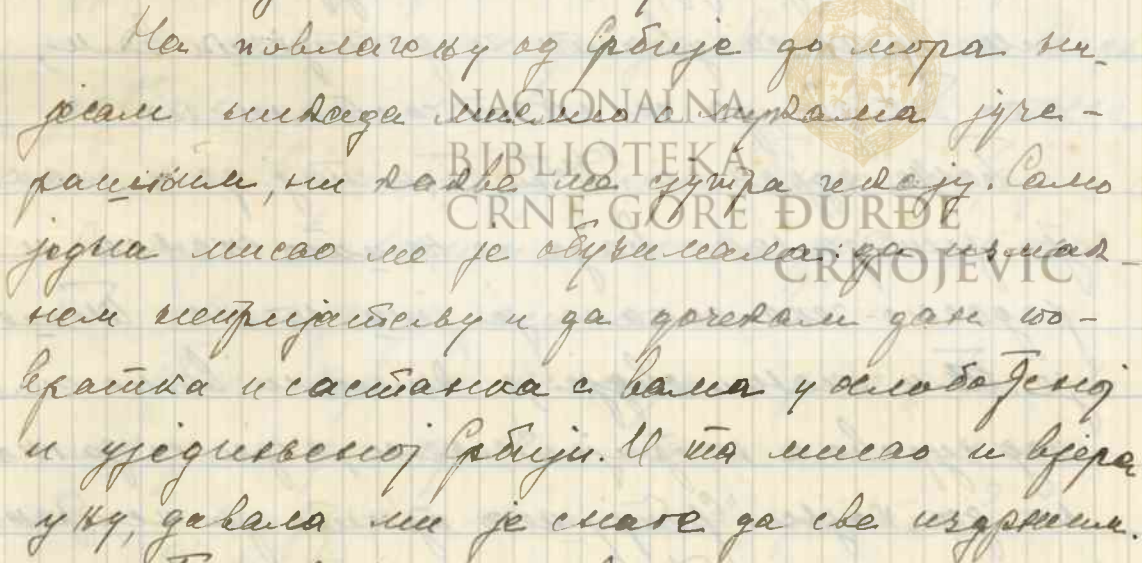 На повлачењу од Србије до мора ни-
јесам никада мислио о мукама јуче-
рашњим, ни какве ме сјутра чекају. Само
једна мисао ме је обузимала: да измак-
нем непријатељу и да дочекам дан по-
вратка и састанка с вама у ослобођеној
и уједињеној Србији. И та мисао и вјера
у њу, давала ми је снаге да све издржим.
NACIONALNA
BIBLIOTEKA
CRNE GORE ĐURĐE
CRNOJEVIĆ